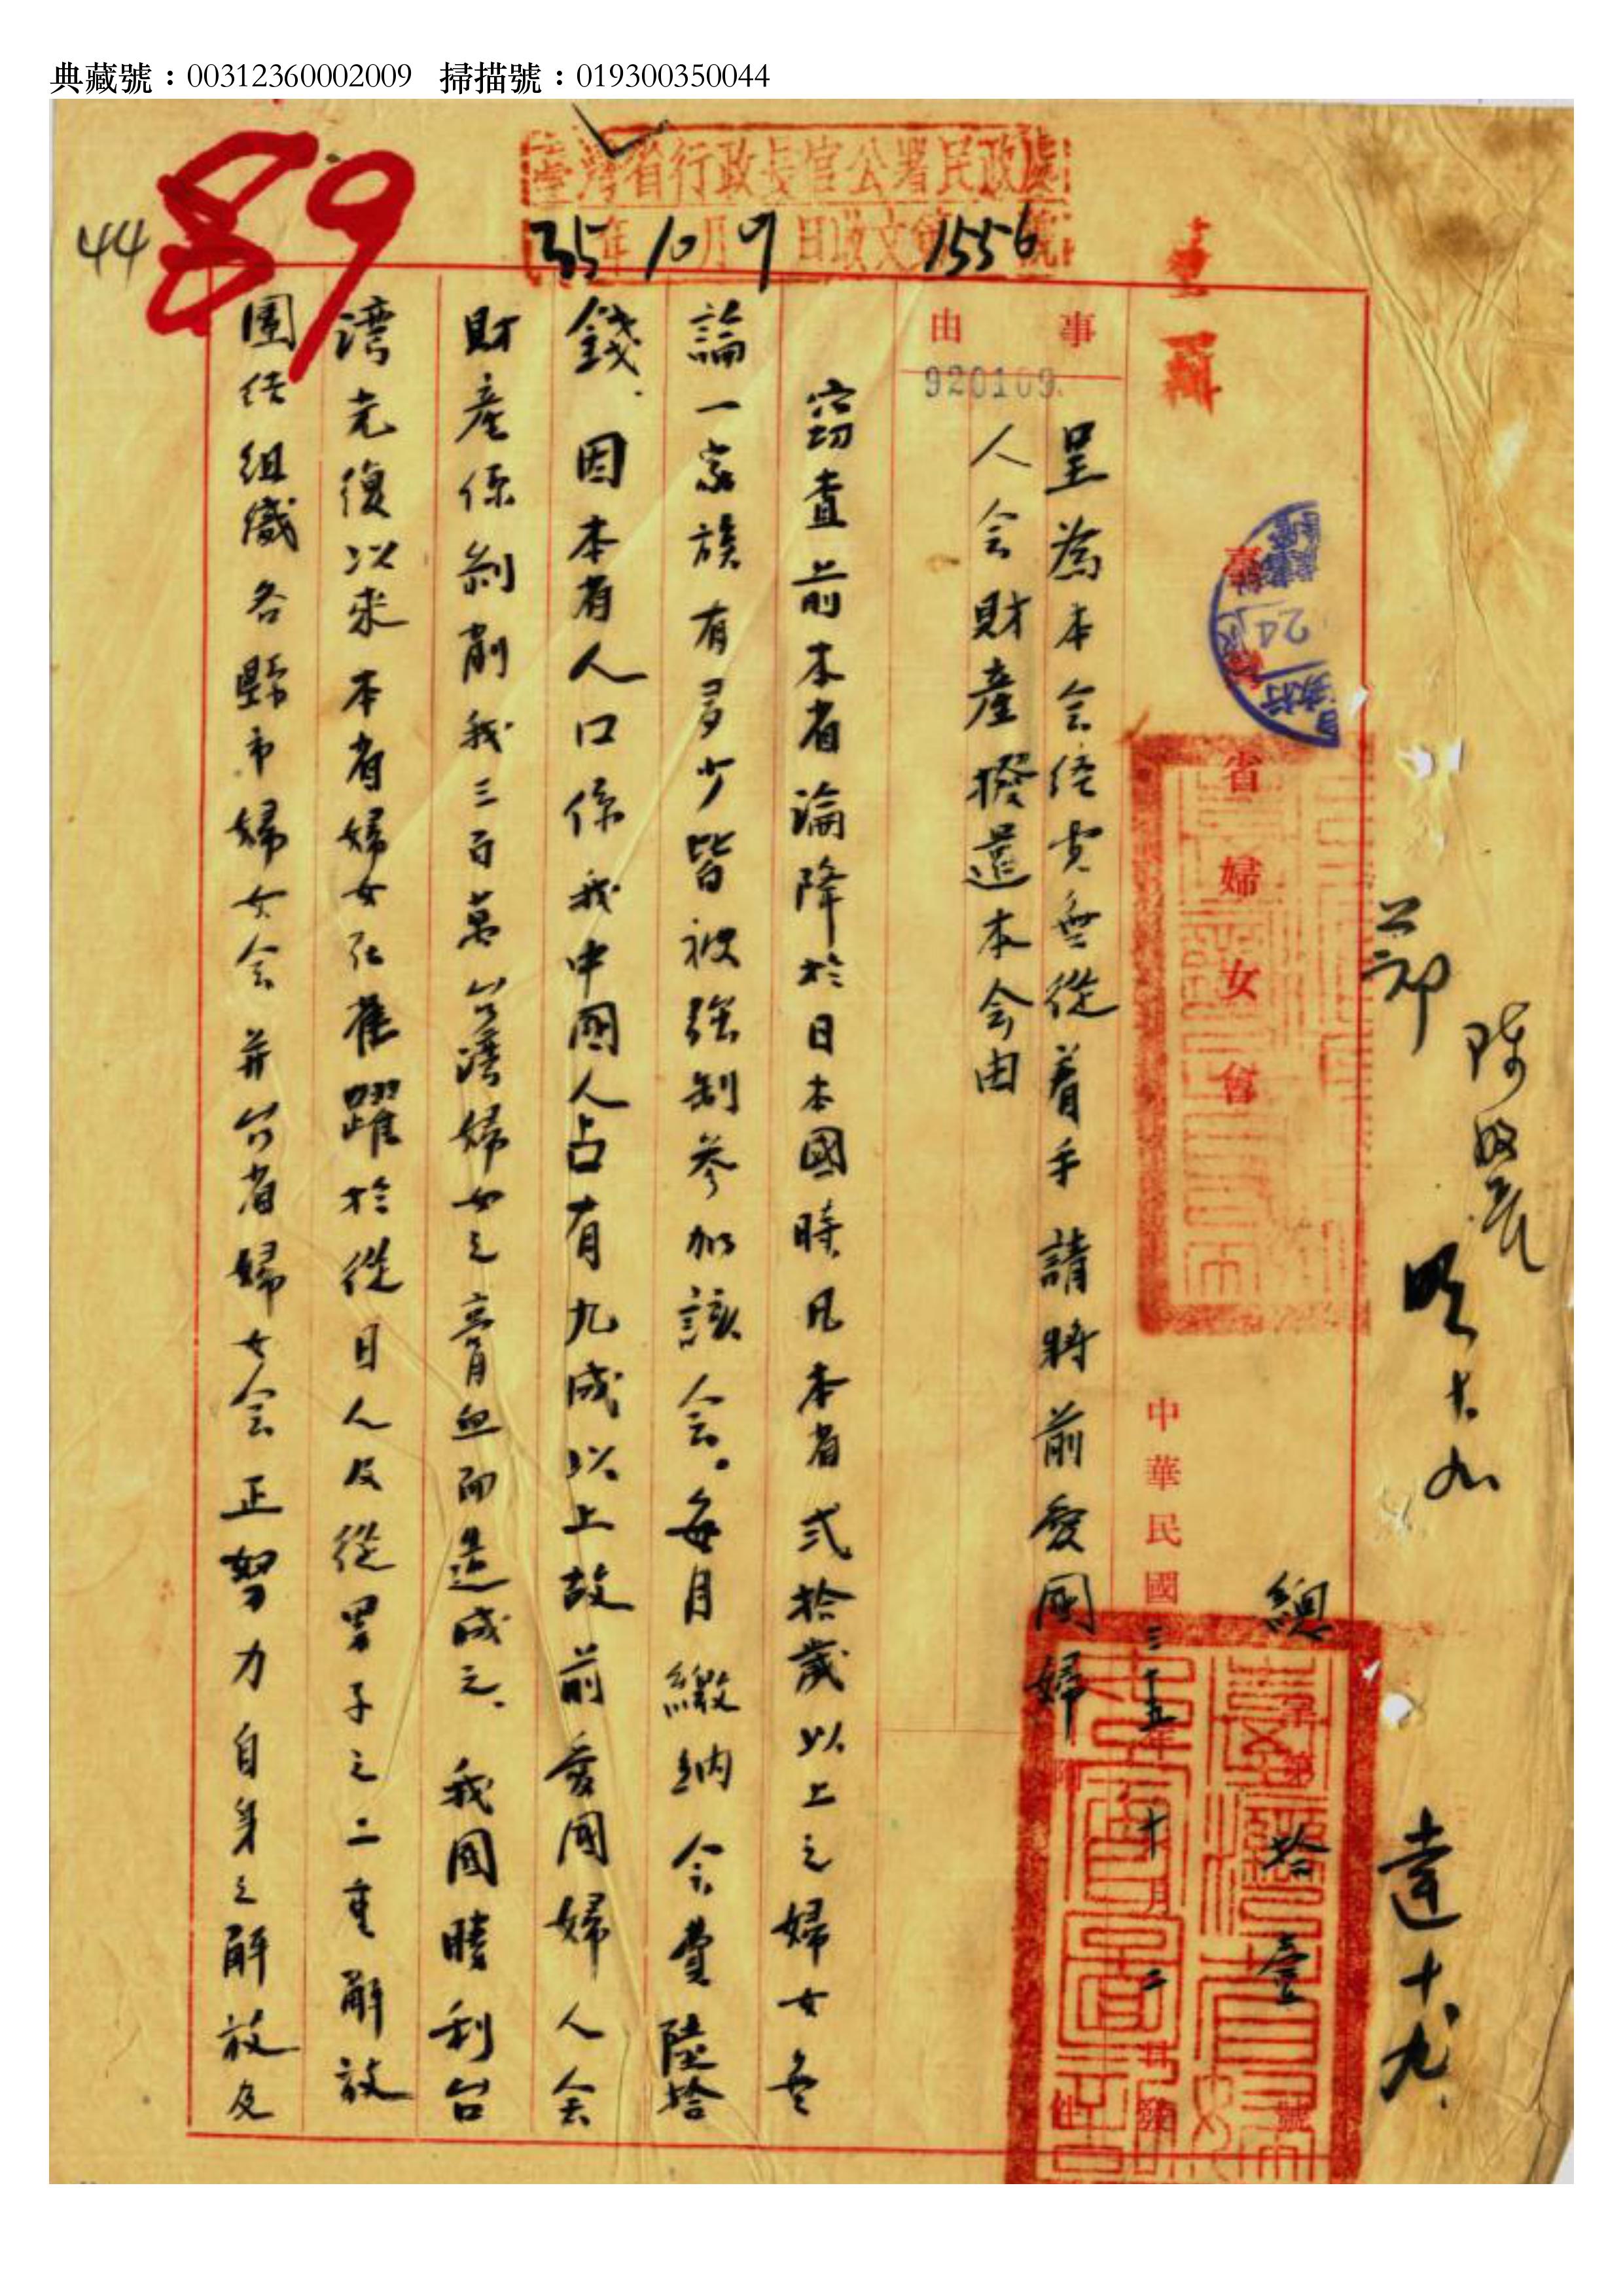 典藏號：00312360002009 掃描號：019300350044
44
89
臺灣省行政長官公署民政處
35年10月9日收文第1556號
事由
920109
臺灣省婦女會
總字第拾壹號
中華民國三十五年十月二日發
附件
呈為本会経費無從着手請將前愛國婦
人会財產撥還本会由
窃查前本省淪降於日本國時凡本省弍拾歲以上之婦女無
論一家族有多少皆被強制參加該会。每月繳納会費陸拾
錢．因本省人口係我中國人占有九成以上故前愛國婦人会
財產係剝削我三百萬台灣婦女之膏血而造成之．我國勝利台
湾光復以來本省婦女在雀躍於從日人及從男子之二重解放
團结組織各縣市婦女会并台省婦女会正努力自身之解放及